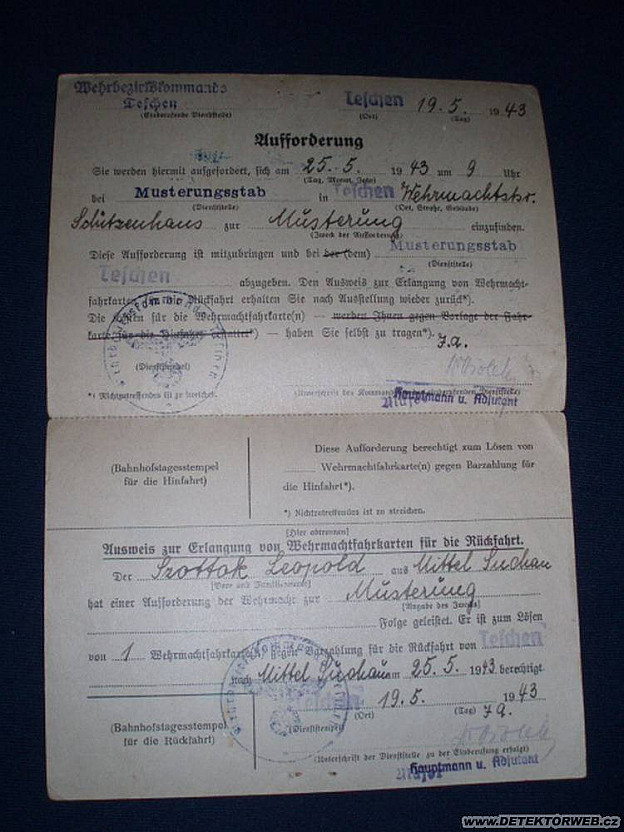 Wehrbezirkskommando
Teschen
(Einberufende Dienststelle)
Teschen 19.5. 1943
(Ort) (Tag)
Aufforderung
Sie werden hiermit aufgefordert, sich am 25.5. 1943 um 9 Uhr
(Tag, Monat, Jahr)
bei Musterungsstab in Teschen Wehrmachtstr.
(Dienststelle) (Ort, Straße, Gebäude)
Schützenhaus zur Musterung einzufinden.
(Zweck der Aufforderung)
Diese Aufforderung ist mitzubringen und bei der (dem) Musterungsstab
(Dienststelle)
Teschen abzugeben. Den Ausweis zur Erlangung von Wehrmacht-
fahrkarten Rückfahrt erhalten Sie nach Ausstellung wieder zurück*).
Die Kosten für die Wehrmachtfahrkarte(n) — werden Ihnen gegen Vorlage der Fahr-
karte für die Hinfahrt erstattet*) — haben Sie selbst zu tragen*).
J.A.
(Dienststempel)
*) Nichtzutreffendes ist zu streichen.
(Unterschrift des einberufenden Dienststelle)
Hauptmann u. Adjutant
(Bahnhofstagesstempel
für die Hinfahrt)
Diese Aufforderung berechtigt zum Lösen von
Wehrmachtfahrkarte(n) gegen Barzahlung für
die Hinfahrt*).
*) Nichtzutreffendes ist zu streichen.
(Hier abtrennen)
Ausweis zur Erlangung von Wehrmachtfahrkarten für die Rückfahrt.
Der Szottok Leopold aus Mittel Suchau
(Vor- und Familienname)
hat einer Aufforderung der Wehrmacht zur Musterung
(Angabe des Zwecks)
Folge geleistet. Er ist zum Lösen
von 1 Wehrmachtfahrkarte(n) gegen Barzahlung für die Rückfahrt von Teschen
nach Mittel Suchau am 25.5. 1943 berechtigt
Teschen 19.5. 1943
(Ort) (Tag)
J.A.
(Bahnhofstagesstempel
für die Rückfahrt)
(Dienststempel)
(Unterschrift der Dienststelle zu der Einberufung erfolgt)
Hauptmann u. Adjutant
www.DETEKTORWEB.cz